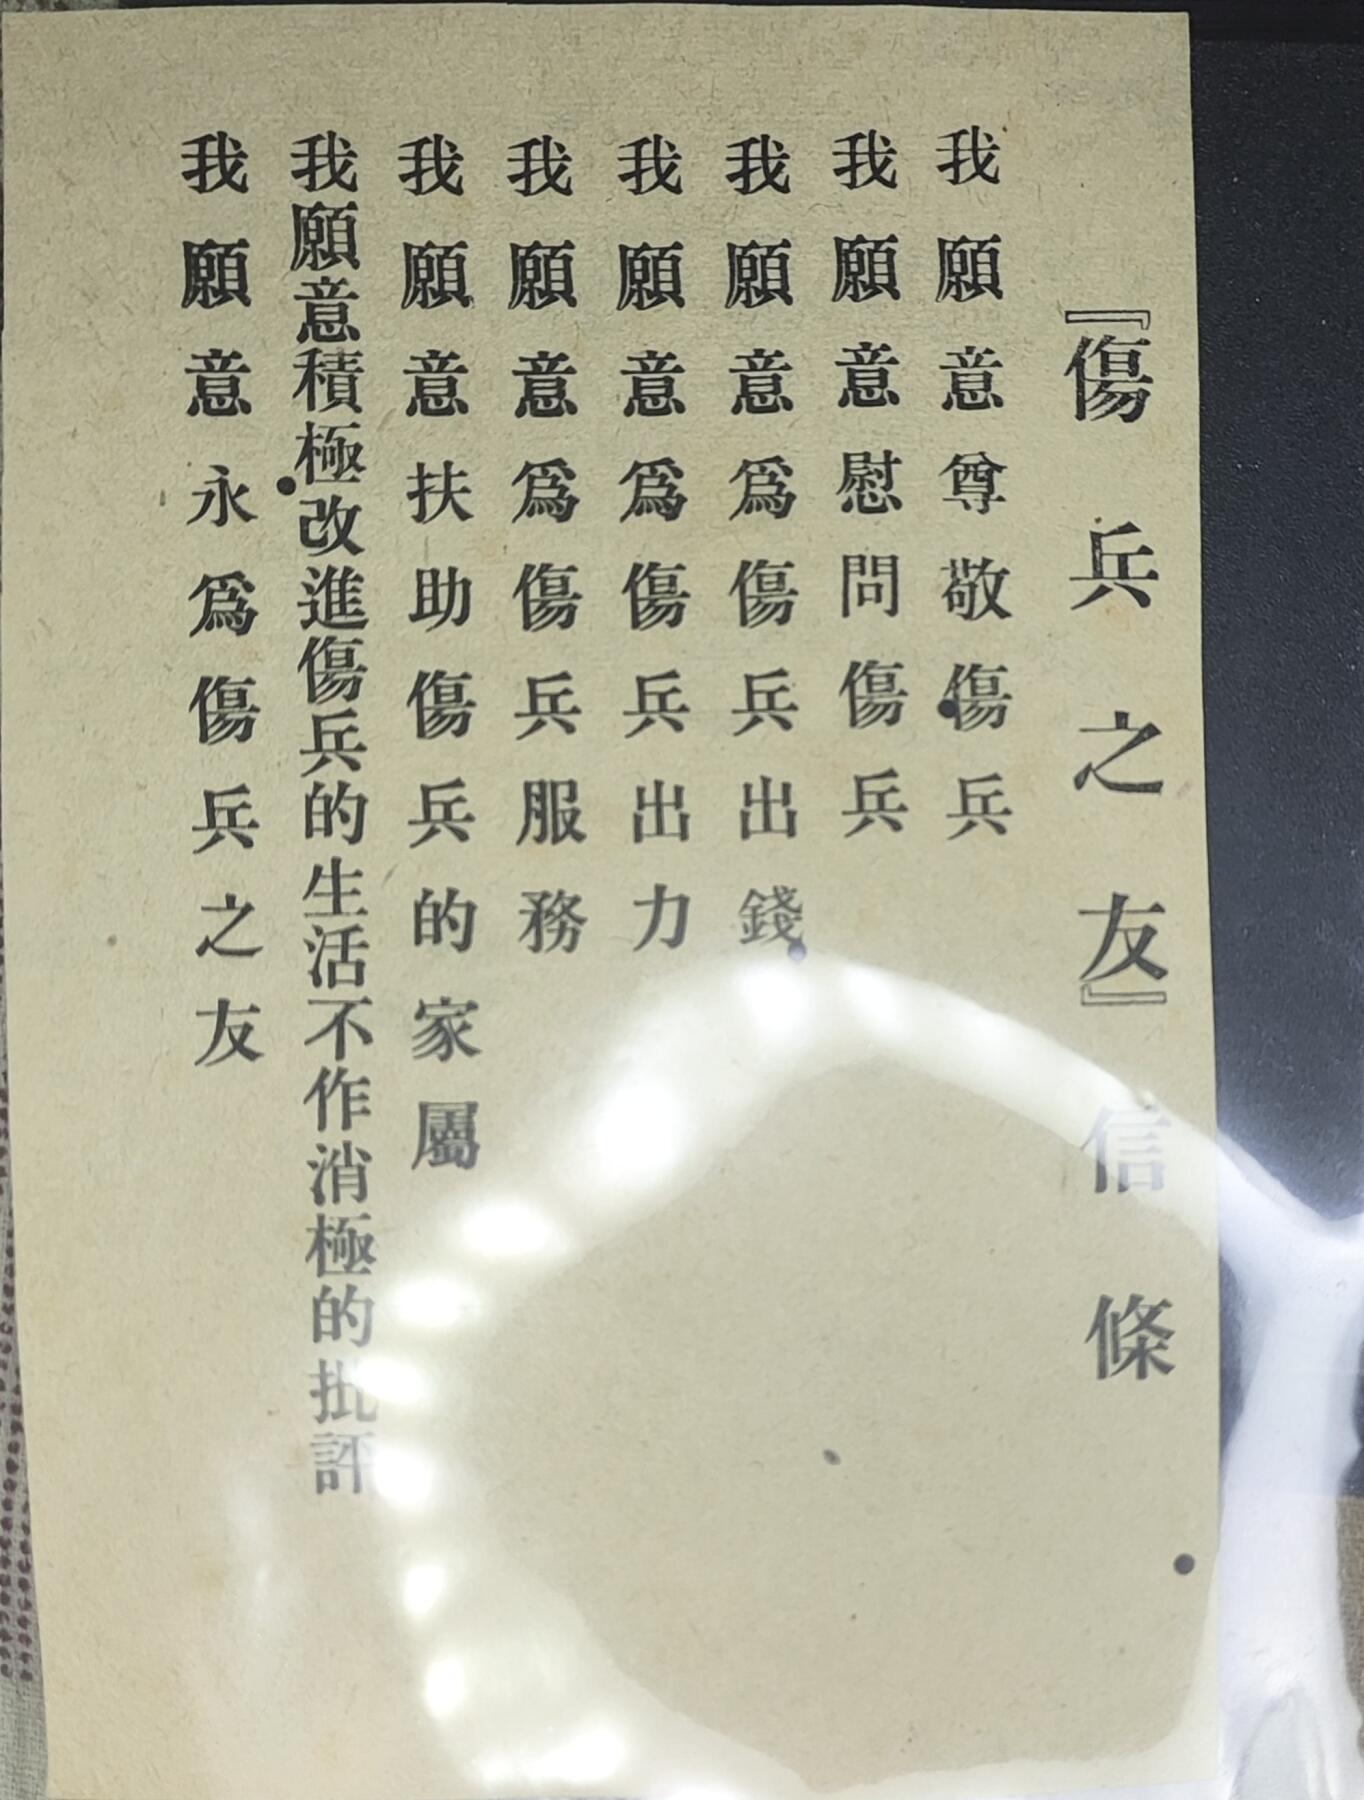 『傷兵之友』信條
我願意尊敬傷兵
我願意慰問傷兵
我願意爲傷兵出錢
我願意爲傷兵出力
我願意爲傷兵服務
我願意扶助傷兵的家屬
我願意積極改進傷兵的生活不作消極的批評
我願意永爲傷兵之友